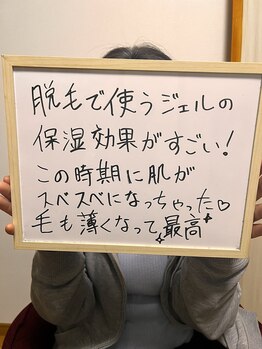 脱毛で使うジェルの
保湿効果がすごい!
この時期に肌が
スベスベになっちゃった♡
毛も薄くなって最高